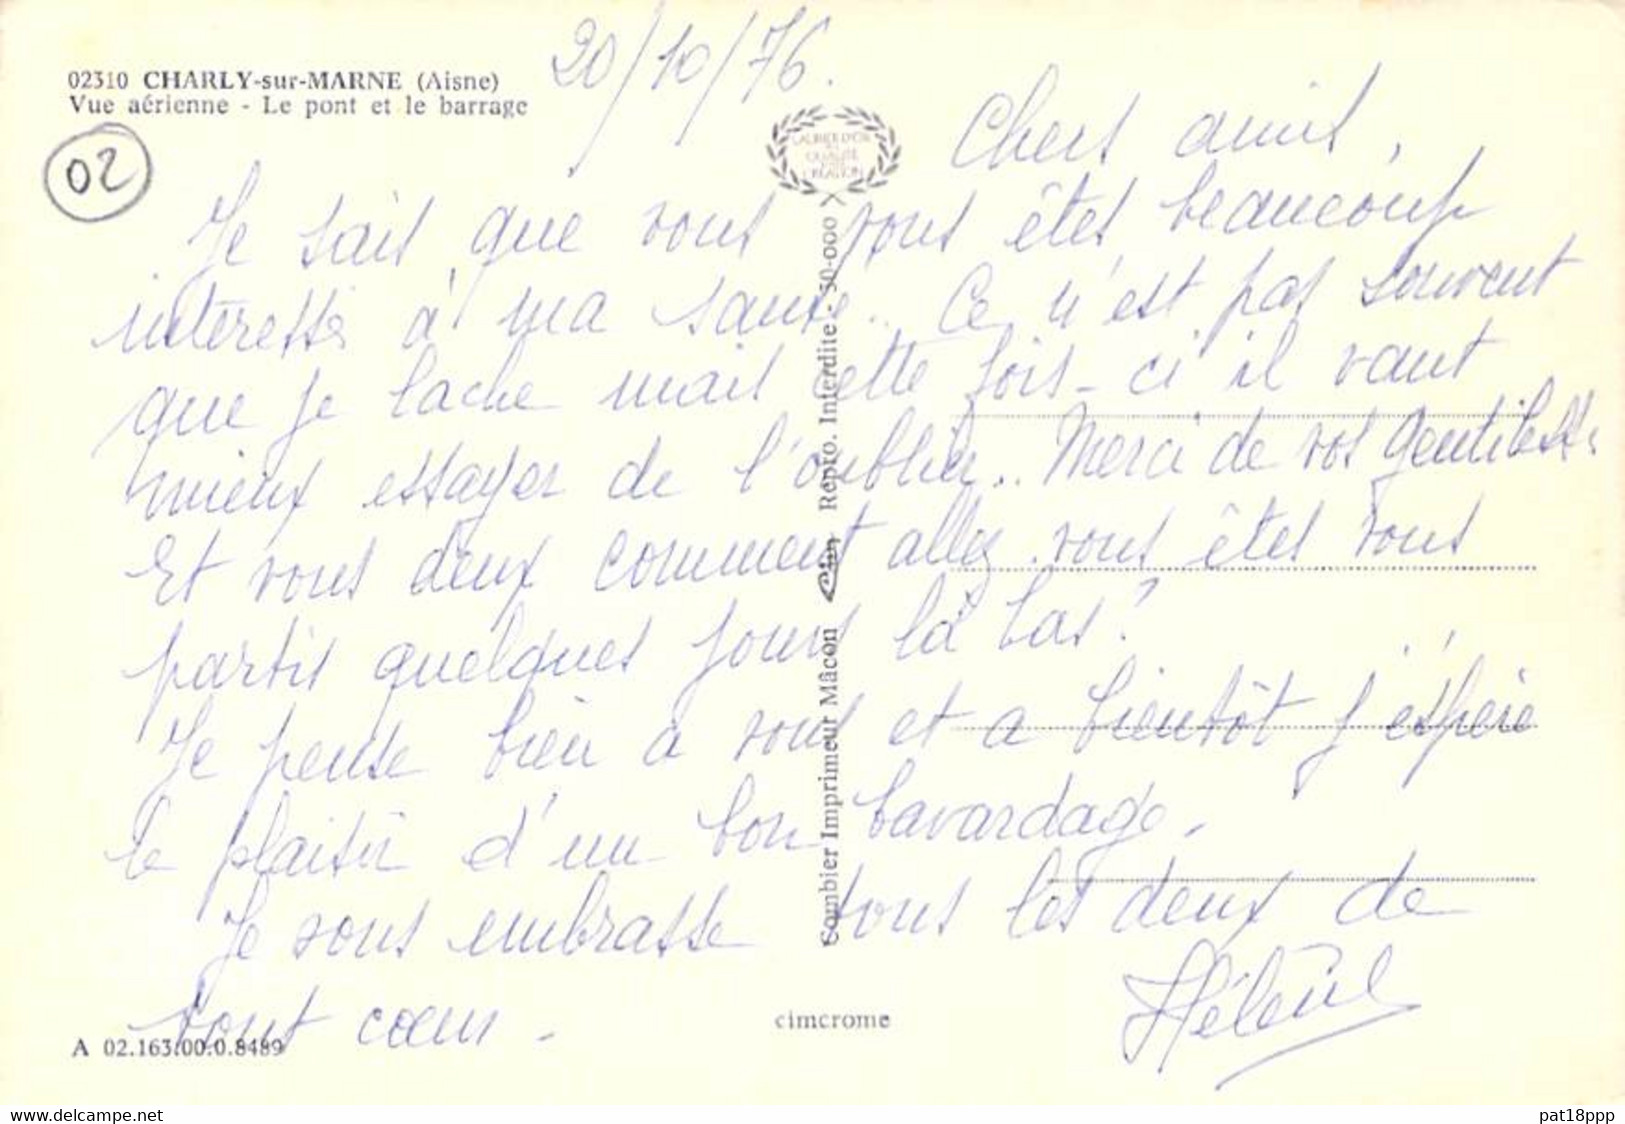 02310 CHARLY-sur-MARNE (Aisne)
Vue aérienne - Le pont et le barrage
20/10/76.
02
LAURIER D'OR
QUALITÉ
CRÉATION
Chers amis,
Je sais que vous vous êtes beaucoup
intéressés à ma santé.. Ce n'est pas souvent
que je lache mais cette fois-ci il vaut
mieux essayer de l'oublier.. Merci de vos gentillesses
Et vous deux comment allez vous êtes vous
partis quelques jours là bas?
Je pense bien à vous et a bientôt j'espère
le plaisir d'un bon bavardage.
Je vous embrasse tous les deux de
tout cœur.
Hélène
Combier Imprimeur Mâcon Cim Repro. Interdite - 50-000
cimcrome
A 02.163.00.0.8489
www.delcampe.net
pat18ppp